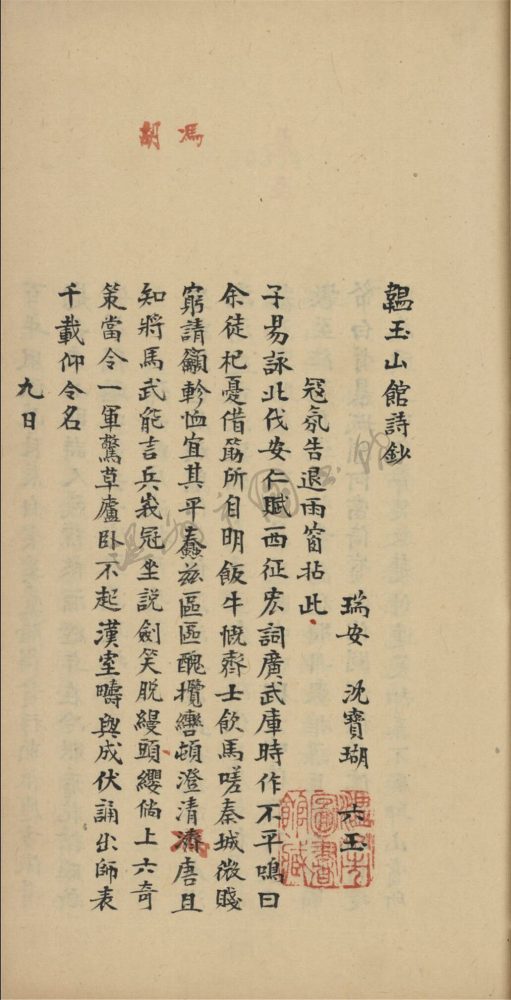 馮
韞玉山館詩鈔
瑞安 沈寶瑚 六玉
溫州市
圖書
館藏
冦氛告退雨窗拈此
子易詠北伐安仁賦西征宏詞廣武庫時作不平鳴曰
余徒杞憂借筯所自明飯牛慨齊士飲馬嗟秦城微賤
窮請籲軫恤宜其平蠢茲區區醜攬轡頓澄清唐且
知將馬武能言兵峩冠坐說劍笑脫縵頭纓倘上六奇
策當令一軍驚草廬臥不起漢室疇與成伏誦出師表
千載仰令名
九日